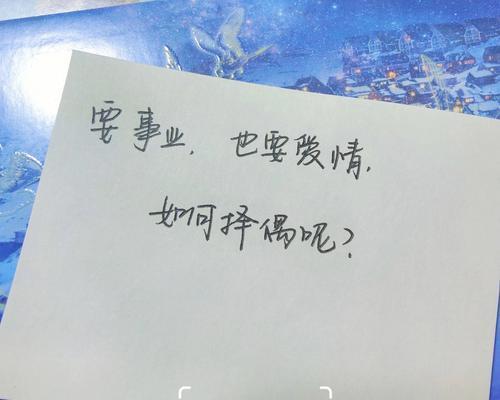 要事业，也要爱情，
如何择偶呢？